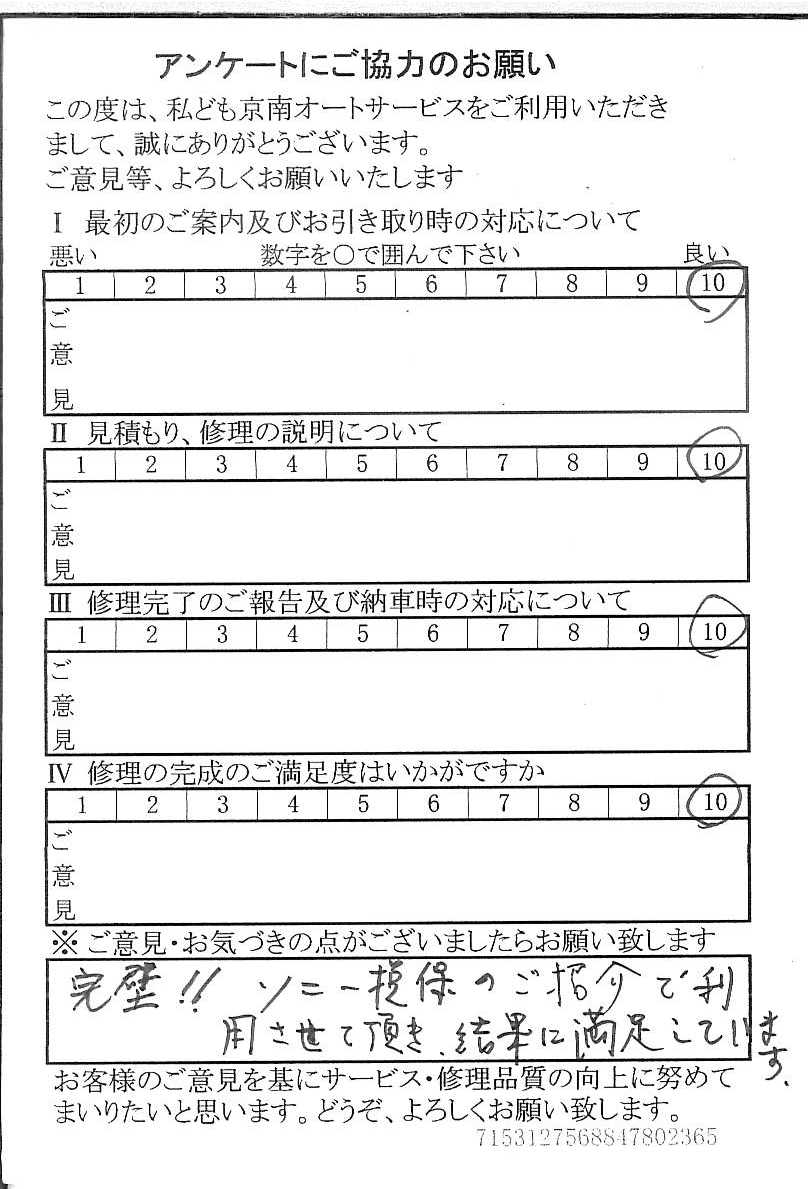 アンケートにご協力のお願い
この度は、私ども京南オートサービスをご利用いただき
まして、誠にありがとうございます。
ご意見等、よろしくお願いいたします
Ⅰ 最初のご案内及びお引き取り時の対応について
悪い 数字を○で囲んで下さい 良い
1 2 3 4 5 6 7 8 9 10
ご意見
Ⅱ 見積もり、修理の説明について
1 2 3 4 5 6 7 8 9 10
ご意見
Ⅲ 修理完了のご報告及び納車時の対応について
1 2 3 4 5 6 7 8 9 10
ご意見
Ⅳ 修理の完成のご満足度はいかがですか
1 2 3 4 5 6 7 8 9 10
ご意見
※ ご意見・お気づきの点がございましたらお願い致します
完璧!! ソニー損保のご紹介で利
用させて頂き、結果に満足しています。
お客様のご意見を基にサービス・修理品質の向上に努めて
まいりたいと思います。どうぞ、よろしくお願い致します。
7153127568847802365